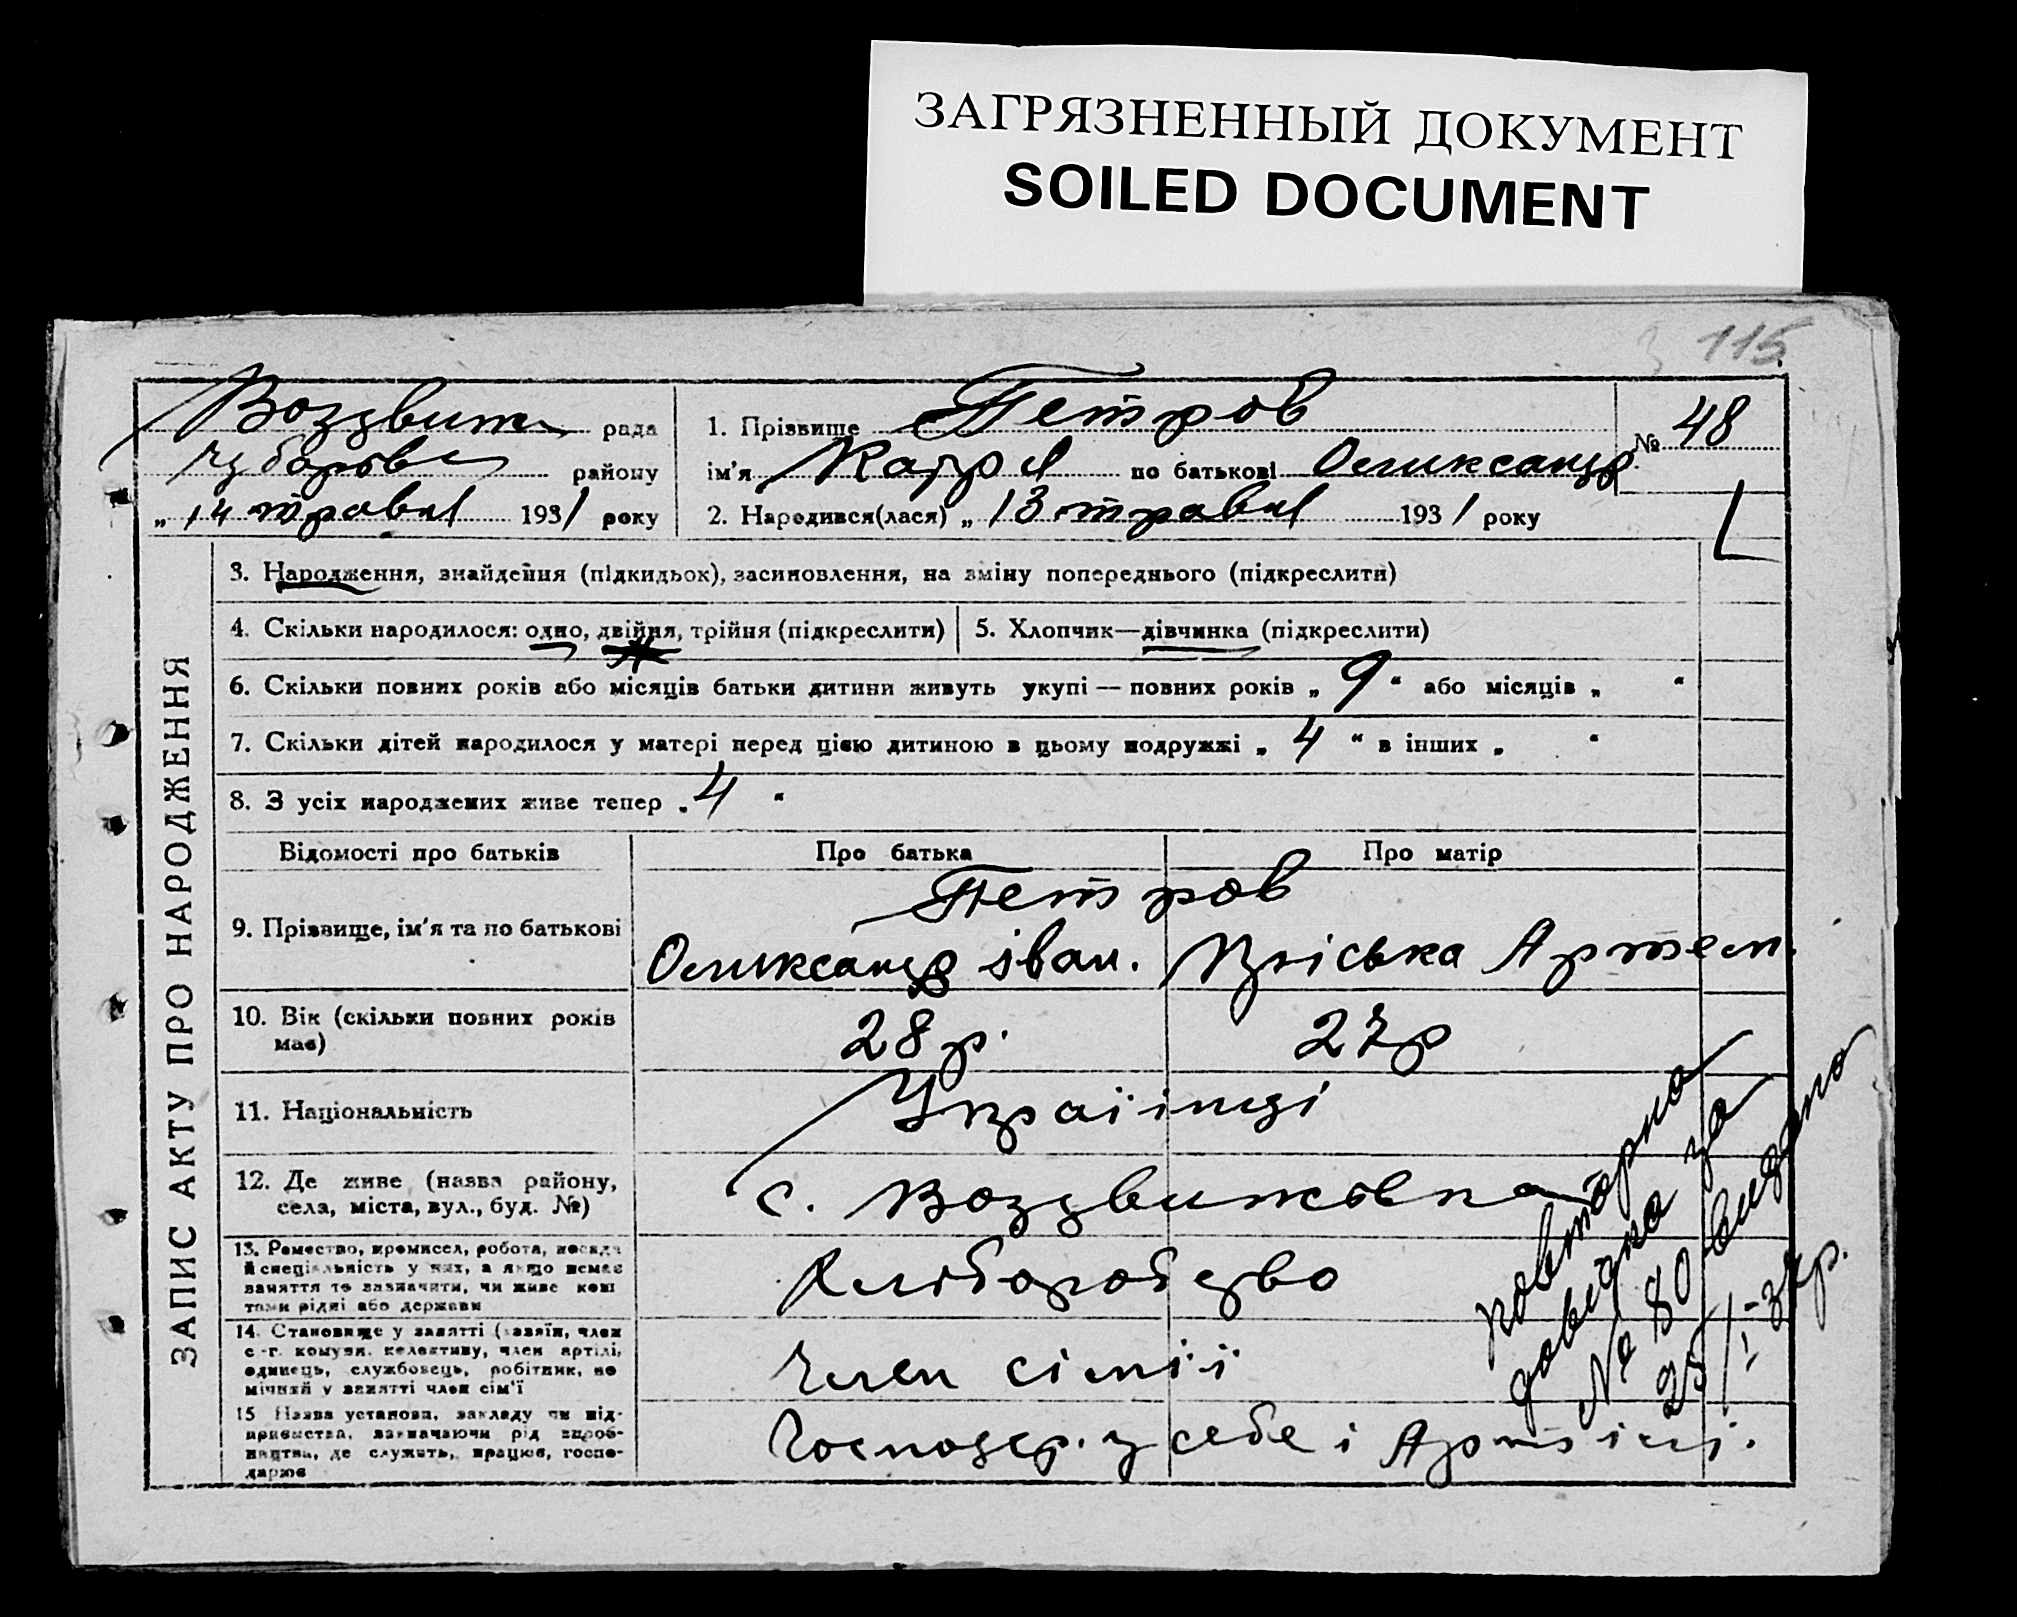 ЗАГРЯЗНЕННЫЙ ДОКУМЕНТ
SOILED DOCUMENT
115
Воздвиж рада
Чубарівс району
„ 14 травня 1931 року
1. Прізвище Петров
ім'я по батькові Оликсандр
2. Народився(лася) „ 13 травня 1931 року
№ 48
ЗАПИС АКТУ ПРО НАРОДЖЕННЯ
3. Народження, знайдення (підкидьох), засиновлення, на зміну попереднього (підкреслити)
4. Скільки народилося: одно, двійня, трійня (підкреслити)
5. Хлопчик—дівчинка (підкреслити)
6. Скільки повних років або місяців батьки дитини живуть укупі — повних років „ 9 “ або місяців „ “
7. Скільки дітей народилося у матері перед цією дитиною в цьому подружжі „ 4 “ в інших „ “
8. З усіх народжених живе тепер „ 4 “
Відомості про батьків
Про батька
Про матір
9. Прізвище, ім'я та по батькові
Петров
Оликсандр Іван.
Артем.
10. Вік (скільки повних років має)
28 р.
27 р
11. Національність
Українці
12. Де живе (назва району, села, міста, вул., буд. №)
с. Воздвижовка
13. Ремество, промисел, робота, посада й спеціяльність у них, а якщо немає заняття то зазначити, чи живе коштами рідні або держави
Хліборобство
14. Становище у занятті (хазяїн, член с.-г. комуни, колективу, член артілі, одинець, службовець, робітник, помічний у занятті член сім'ї
Член сімії
15 Назва установи, закладу чи підприємства, зазначаючи рід виробництва, де служить, працює, господарює
Господар. у себе і Артілі.
повторна
довідка за
№ 80 видано
25/I-37р.